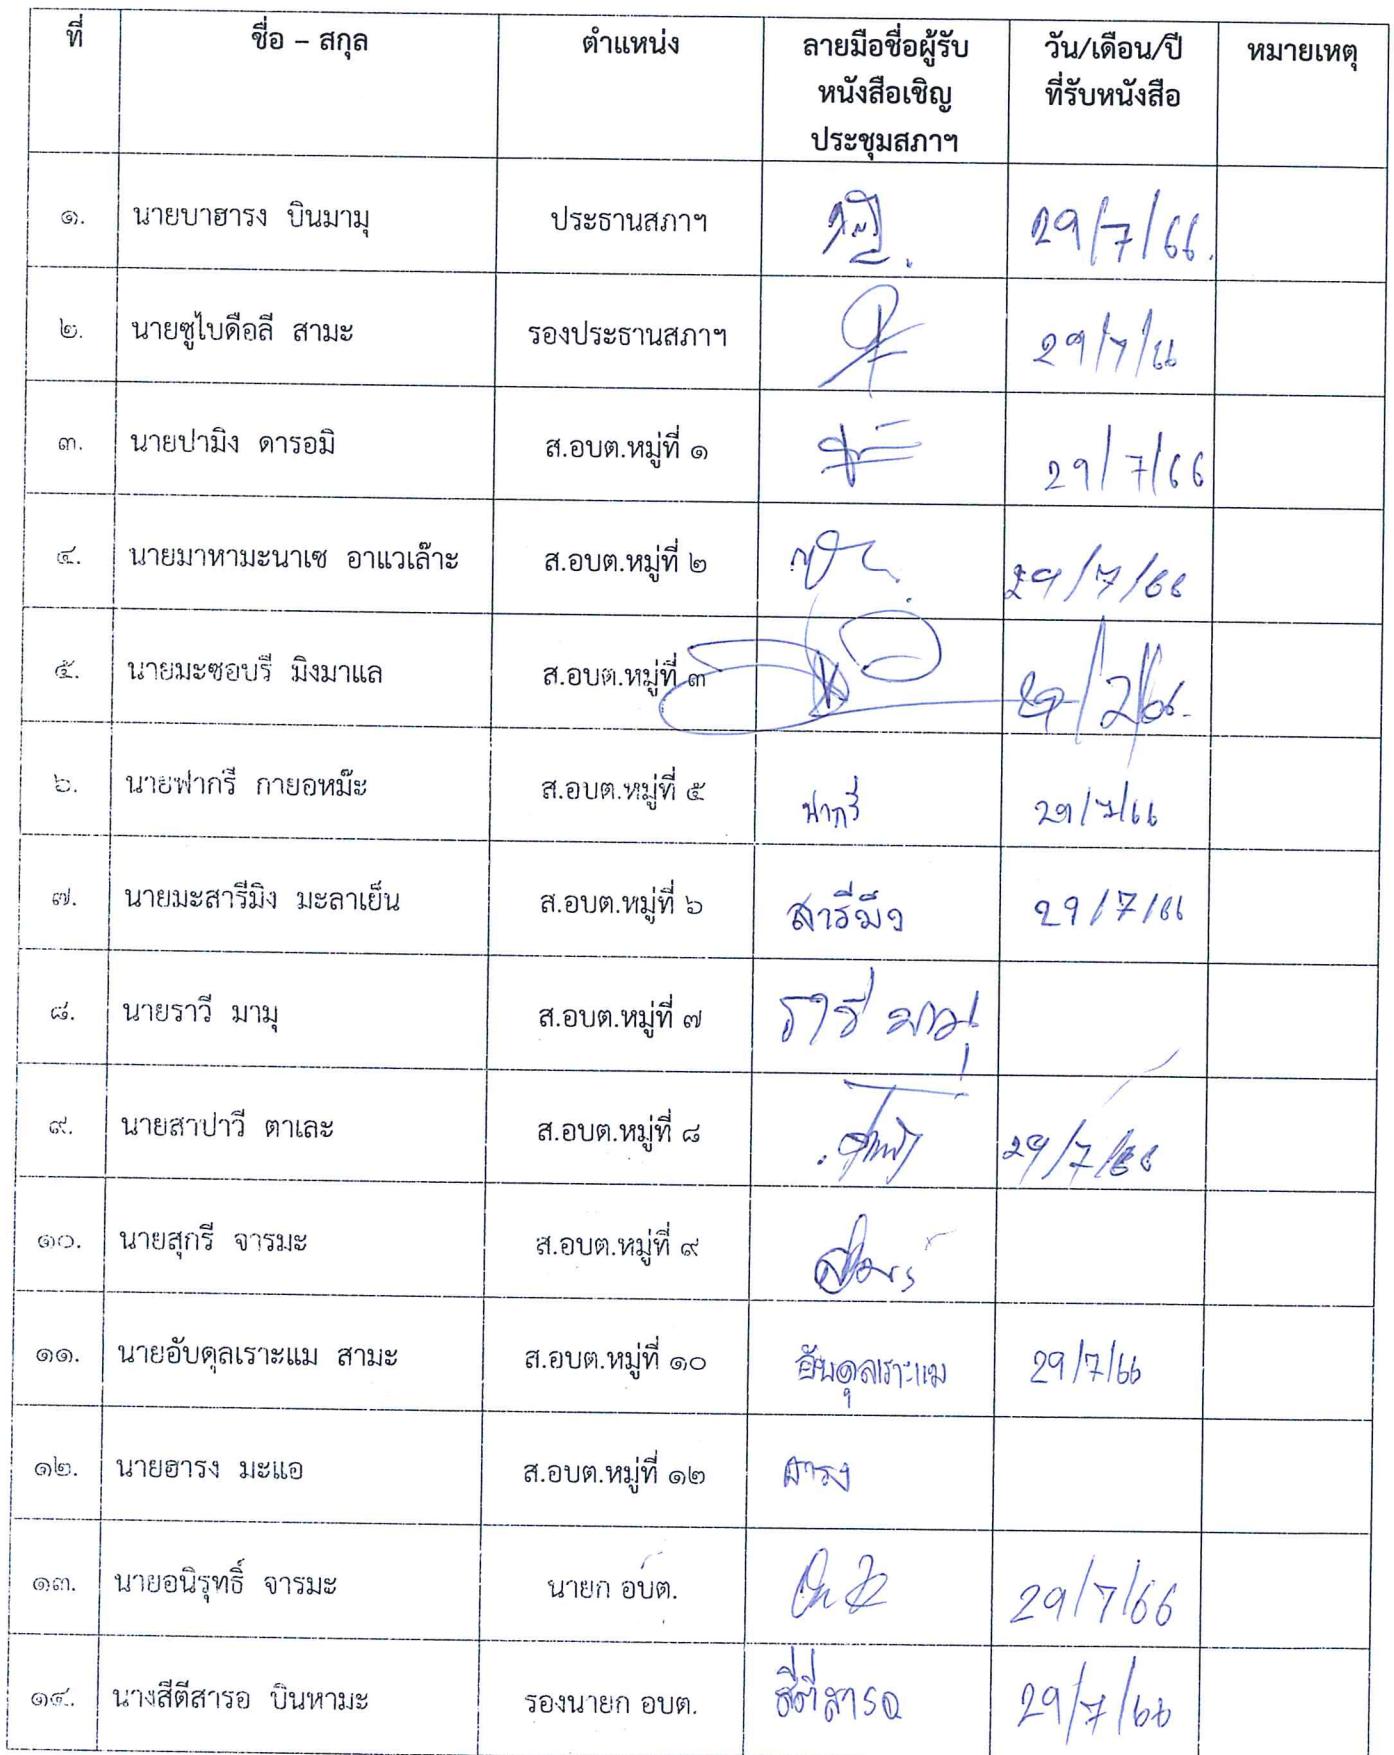 ที่ ชื่อ – สกุล ตำแหน่ง ลายมือชื่อผู้รับ วัน/เดือน/ปี หมายเหตุ
หนังสือเชิญ ที่รับหนังสือ
ประชุมสภาฯ
๑. นายบาฮารง บินมามุ ประธานสภาฯ 29/7/66.
๒. นายซูไบดือลี สามะ รองประธานสภาฯ 29/7/66
๓. นายปามิง ดารอมิ ส.อบต.หมู่ที่ ๑ 29/7/66
๔. นายมาหามะนาเซ อาแวเล๊าะ ส.อบต.หมู่ที่ ๒ 29/7/66
๕. นายมะซอบรี มิงมาแล ส.อบต.หมู่ที่ ๓
๖. นายฟากรี กายอหม๊ะ ส.อบต.หมู่ที่ ๕ ฟากรี 29/7/66
๗. นายมะสารีมิง มะลาเย็น ส.อบต.หมู่ที่ ๖ สารีมิง 29/7/66
๘. นายราวี มามุ ส.อบต.หมู่ที่ ๗ ราวี มามุ
๙. นายสาปาวี ตาเละ ส.อบต.หมู่ที่ ๘ 29/7/66
๑๐. นายสุกรี จารมะ ส.อบต.หมู่ที่ ๙
๑๑. นายอับดุลเราะแม สามะ ส.อบต.หมู่ที่ ๑๐ อับดุลเราะแม 29/7/66
๑๒. นายฮารง มะแอ ส.อบต.หมู่ที่ ๑๒ ฮารง
๑๓. นายอนิรุทธิ์ จารมะ นายก อบต. 29/7/66
๑๔. นางสีตีสารอ บินหามะ รองนายก อบต. สีตีสารอ 29/7/66